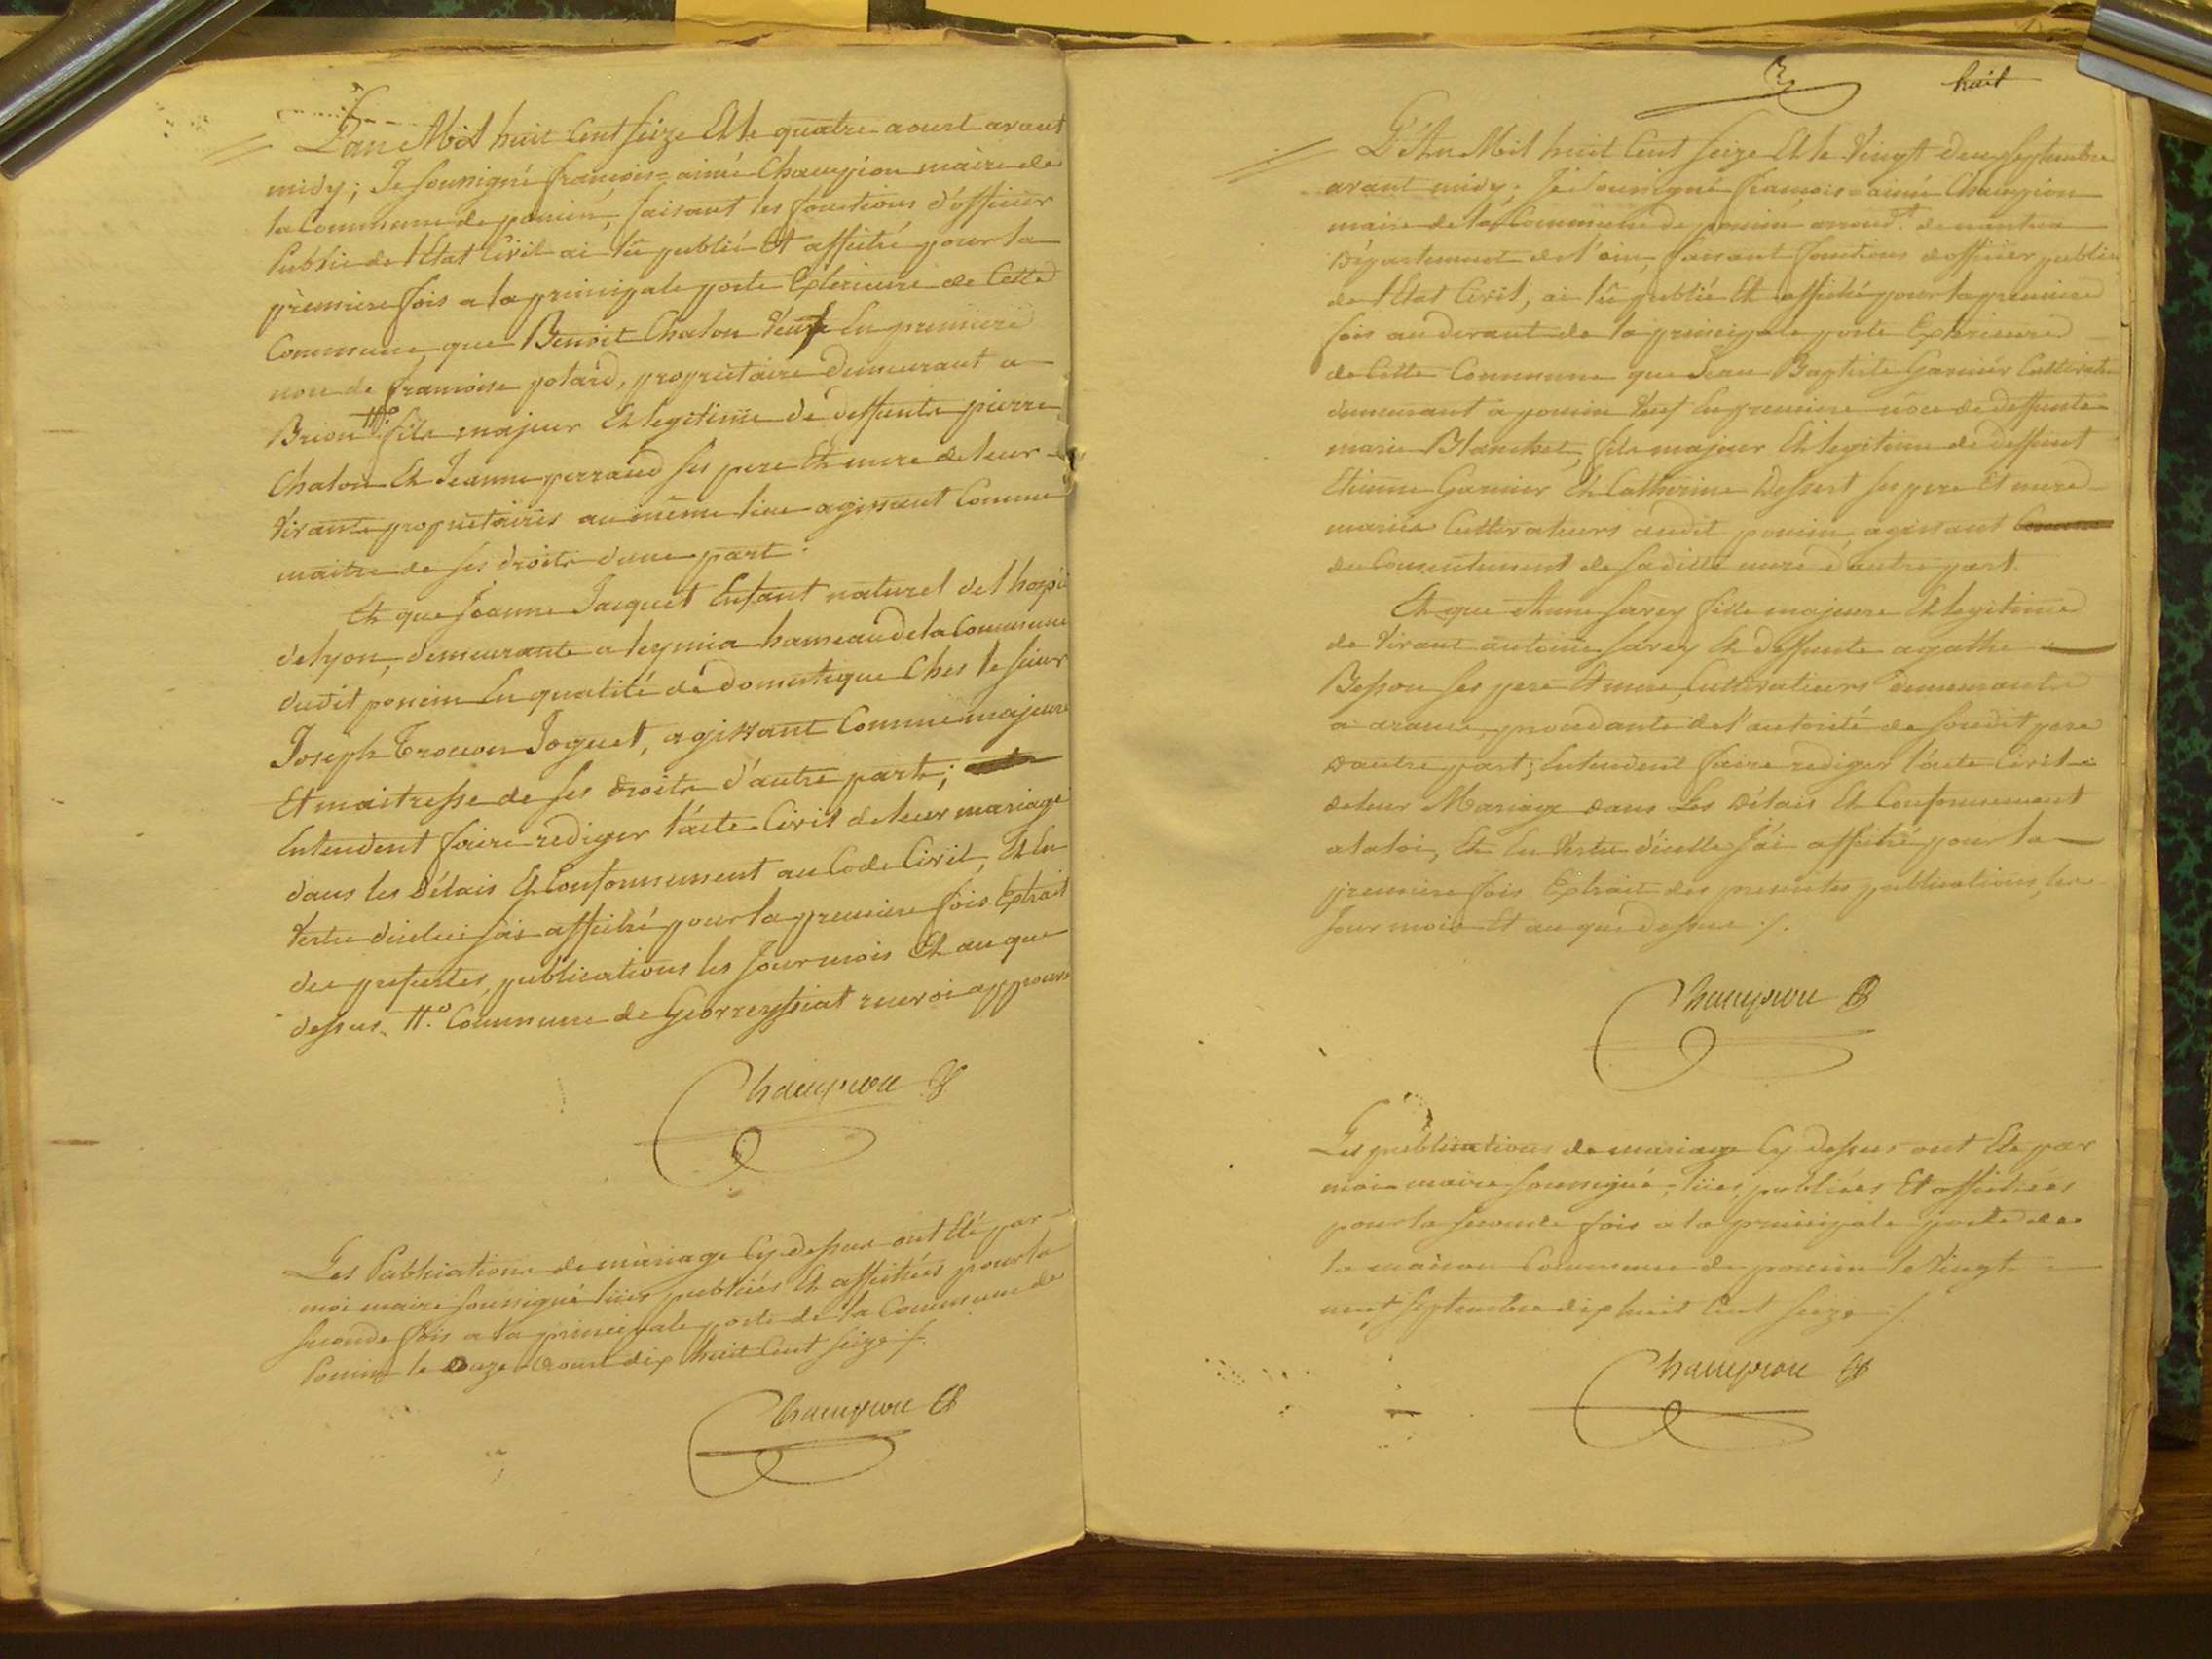 L'an Mil huit Cent seize Et le quatre aoust avant
midy; Je soussigné françois=aimé Champion maire de
la Commune de poncin, faisant les fonctions d'officier
Public de l'Etat Civil ai lû publié Et affiché pour la
première fois a la principale porte Exterieure de Cette
Commune que Benoit Chaton Veuf En premiere
noce de françoise potard, propriétaire demeurant a
Brion #° fils majeur Et legitime de deffunts pierre
Chaton Et Jeanne perraud ses pere Et mere de leur
Vivants propriétaires au même lieu agissant Comme
maitre de ses droits d'une part.
Et que Jeanne Jacquet Enfant naturel de l'hospice
de lyon, demeurante a leymia hameau de la Commune
dudit poncin En qualité de domestique Chez le sieur
Joseph Trocon Joguet, agissant Comme majeure
Et maitresse de ses droits d'autre part;
Entendent faire rediger l'acte Civil de leur mariage
dans les délais Et Conformement au Code Civil, Et En
Vertu d'icelui j'ai affiché pour la premiere fois Extrait
des presentes publications les Jour mois Et an que
dessus. #° Commune de Georreyssiat renvoi approuvé
Champion
Les Publications de mariage Cy dessus ont Eté par
moi maire soussigné lües publiées Et affichées pour la
seconde fois a la principale porte de la Commune de
Poncin le onze aoust dix huit Cent seize ./.
Champion
huit
L'An Mil huit Cent seize Et le Vingt deux septembre
avant midy; Je soussigné françois=aimé Champion
maire de la Commune de poncin arrond.t de nantua
Département de l'ain, faisant fonctions d'officier public
de l'Etat Civil, ai lû publié Et affiché pour la premiere
fois au devant de la principale porte Exterieure
de Cette Commune que Jean Baptiste Garnier Cultivateur
demeurant a poncin Veuf En premiere noce de deffunte
marie Blanchet, fils majeur Et legitime de deffunt
Etienne Garnier Et Catherine Dessert ses pere Et mere
mariés Cultivateurs audit poncin, agissant
du Consentement de sa ditte mere d'autre part.
Et que Anne Savey fille majeure Et legitime
de Vivant antoine Savey Et deffunte agathe
Besson ses pere Et mere, Cultivateurs demeurants
a aranc procedante de l'autorité de son dit pere
d'autre part; Entendent faire rediger l'acte Civil
de leur Mariage dans Les Délais Et Conformement
a la loi, Et En Vertu d'icelle j'ai affiché pour la
premiere fois Extrait des presentes publications, les
Jour mois Et an que dessus ./.
Champion
Les publications de mariage Cy dessus ont Eté par
moi maire soussigné, lües, publiées Et affichées
pour la seconde fois a la principale porte de
la maison Commune de poncin le Vingt
neuf septembre dix huit Cent seize ./.
Champion